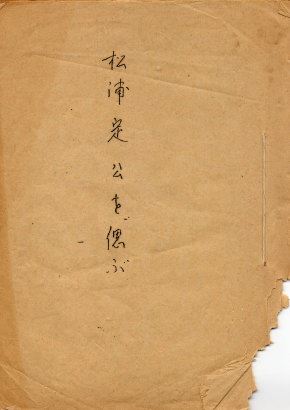 松浦定公を偲ぶ